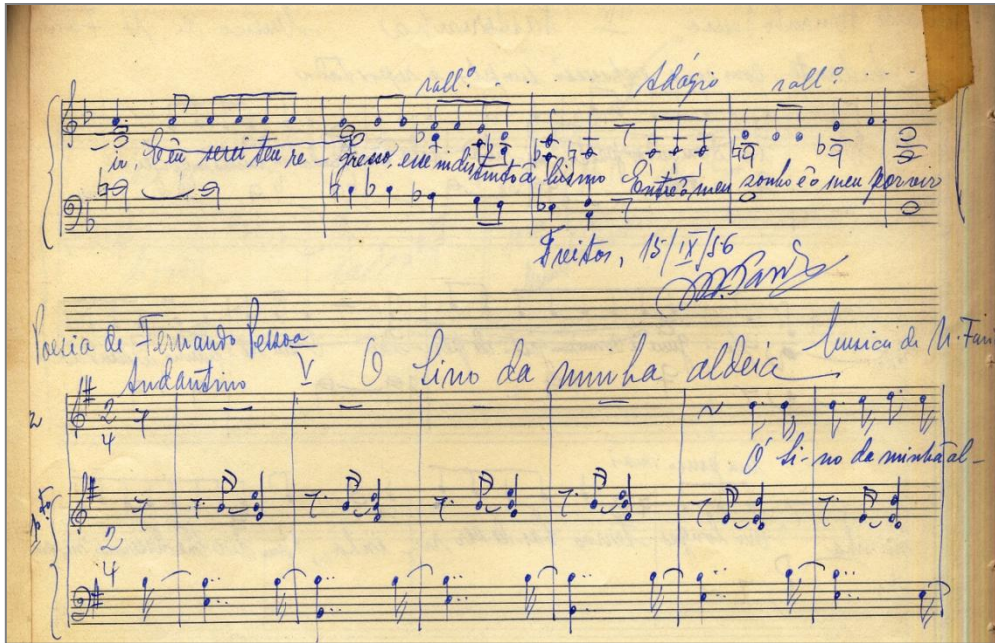 rall.º
Adágio
rall.º
ir, Céu serei teu re - gresso, esse indistinto abismo Entre o meu sonho e o meu porvir
Freitas, 15/IX/56
Poesia de Fernando Pessoa
Andantino
V O Sino da minha aldeia
Musica de N. Fari
2
4
Ó Si-no da minha al-
2
4